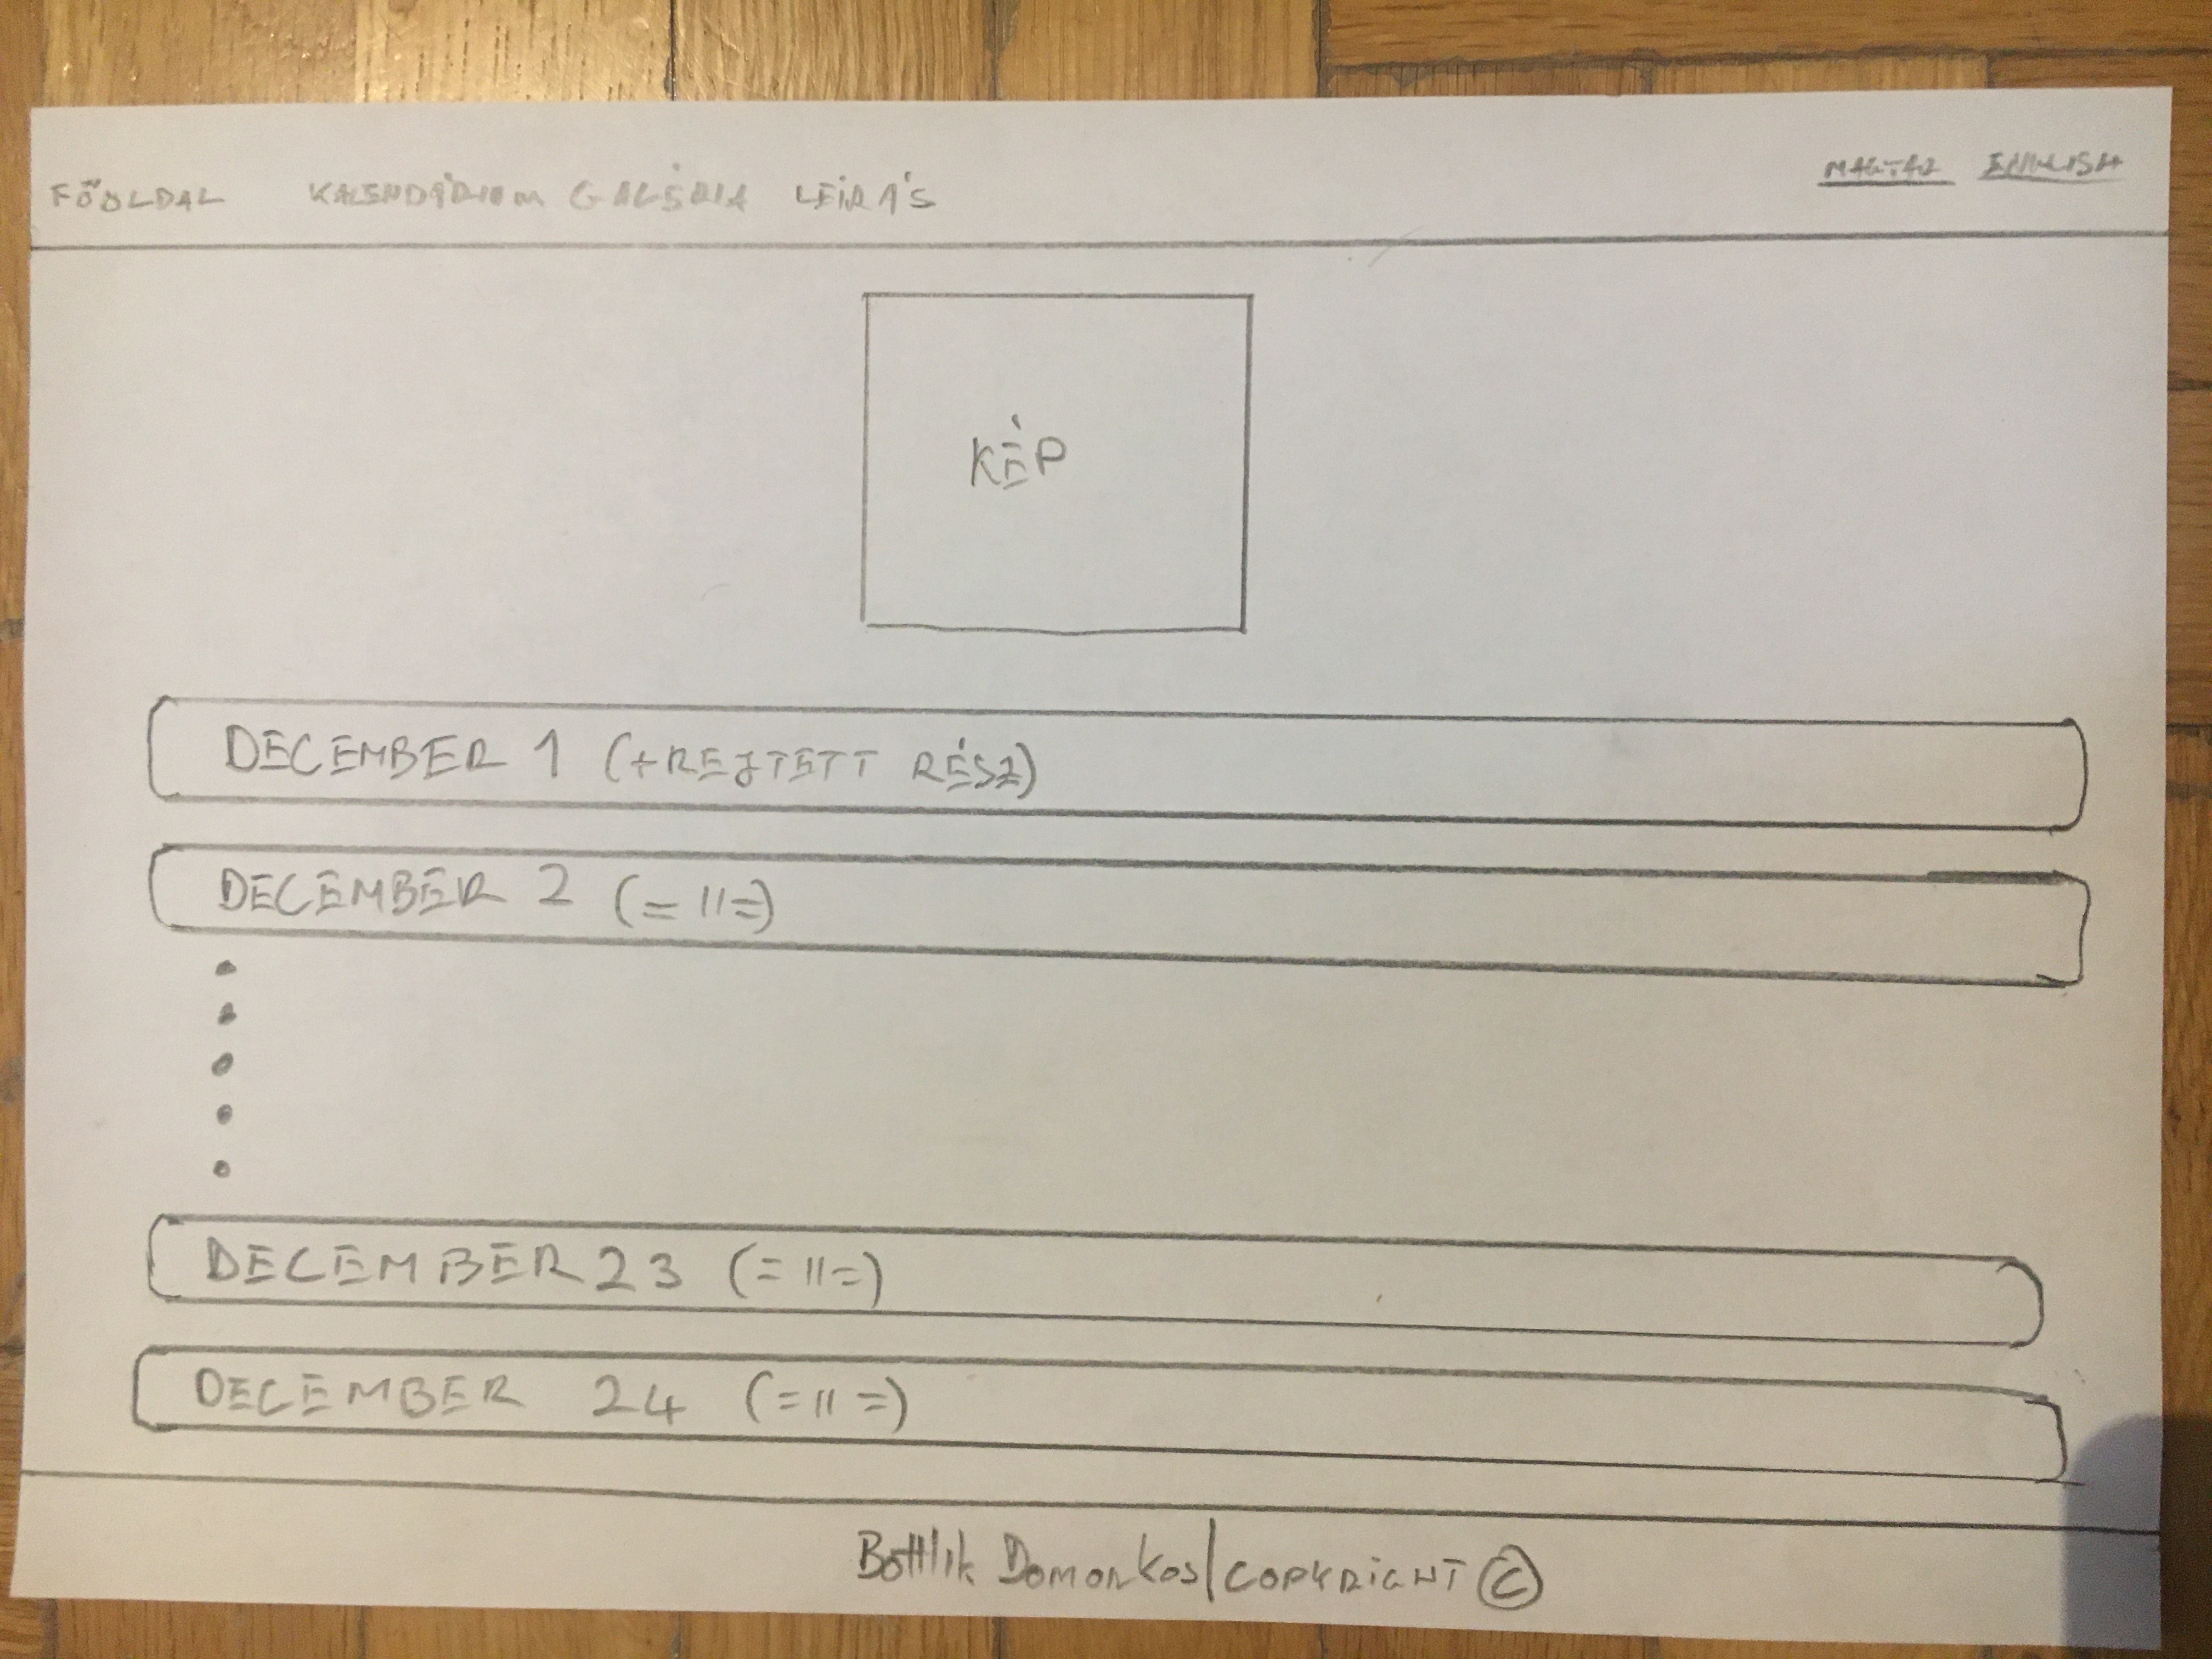 FŐOLDAL KALENDÁRIUM GALÉRIA LEÍRÁS MAGYAR ENGLISH
KÉP
DECEMBER 1 (+REJTETT RÉSZ)
DECEMBER 2 (= 11=)
DECEMBER 23 (= 11=)
DECEMBER 24 (= 11 =)
Bottlik Domonkos | COPYRIGHT ©